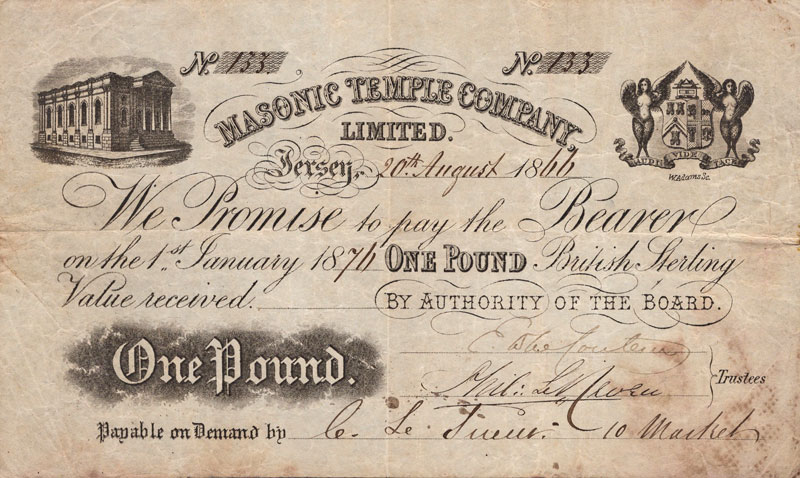 No. 133.
No. 133
MASONIC TEMPLE COMPANY,
LIMITED.
Jersey, 20th August 1866
AUDI VIDE TACE
W. Adams Sc.
We Promise to pay the Bearer
on the 1st January 1876 ONE POUND British Sterling
Value received.
BY AUTHORITY OF THE BOARD.
One Pound.
Trustees
Payable on Demand by C. Le Sueur. 10 Market